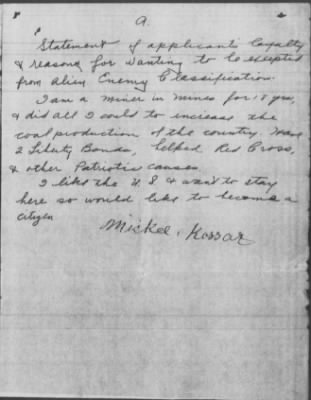 a.
Statement of applicants loyalty
& reasons for wanting to be excepted
from Alien Enemy Classification.
I am a miner in mines for 18 yrs,
& did all I could to increase the
coal production of the country. Have
2 Liberty Bonds, helped Red Cross,
& other Patriotic causes.
I like the U.S & want to stay
here so would like to become a
citizen
Mickel Kossar